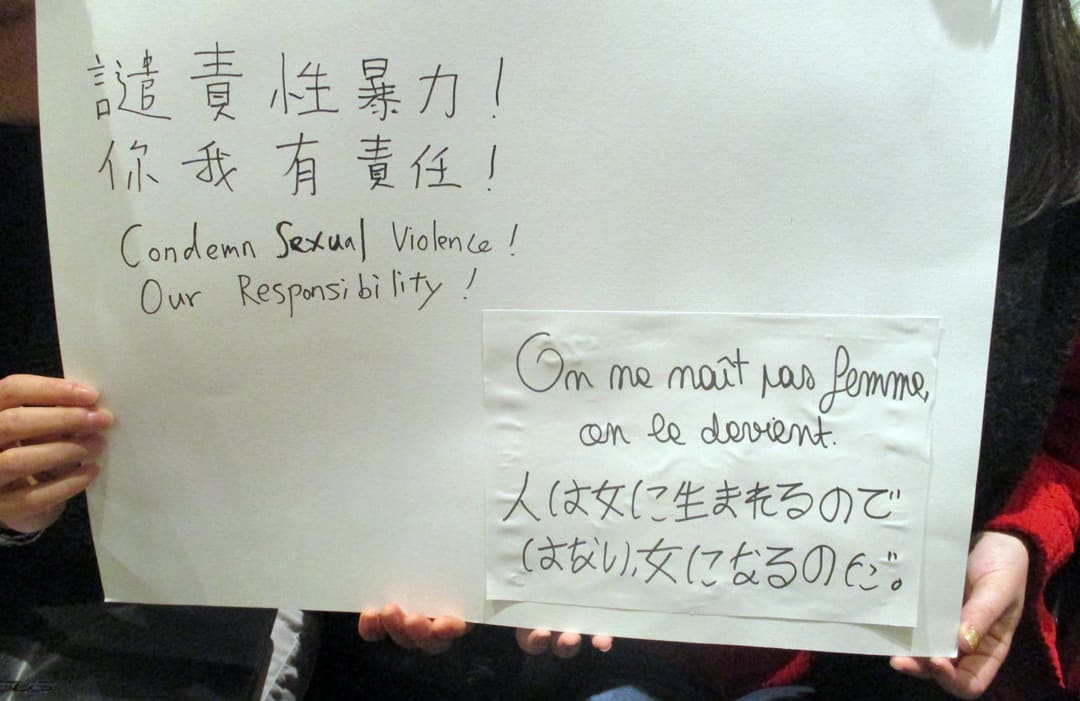 譴責性暴力！
你我有責任！
Condemn Sexual Violence!
Our Responsibility!
On ne naît pas femme,
on le devient.
人は女に生まれるので
はない、女になるのだ。